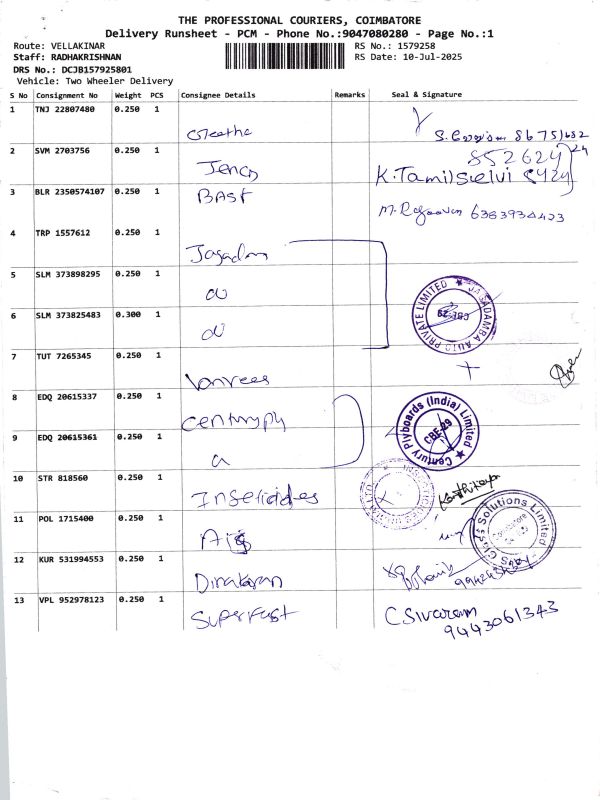 THE PROFESSIONAL COURIERS, COIMBATORE
Delivery Runsheet - PCM - Phone No.:9047080280 - Page No.:1
Route: VELLAKINAR
RS No.: 1579258
Staff: RADHAKRISHNAN
RS Date: 10-Jul-2025
DRS No.: DCJB157925801
Vehicle: Two Wheeler Delivery
S No Consignment No Weight PCS Consignee Details Remarks Seal & Signature
1 TNJ 22807480 0.250 1
Geetha
2 SVM 2703756 0.250 1
852624
K.Tamilselvi
3 BLR 2350574107 0.250 1
BASF
6363934423
4 TRP 1557612 0.250 1
5 SLM 373898295 0.250 1
JAGADAMBA AUTO PRIVATE LIMITED
CBE-29
6 SLM 373825483 0.300 1
7 TUT 7265345 0.250 1
8 EDQ 20615337 0.250 1
Centuryply
Century Plyboards (India) Limited
CBE-29
9 EDQ 20615361 0.250 1
10 STR 818560 0.250 1
Karthikeyan
11 POL 1715400 0.250 1
Solutions Limited
Coimbatore
12 KUR 531994553 0.250 1
Dinakaran
13 VPL 952978123 0.250 1
Superfast
C Sivaram
9443061343